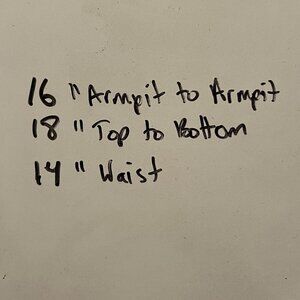 16 "Armpit to Armpit
18 "Top to Bottom
14 " Waist